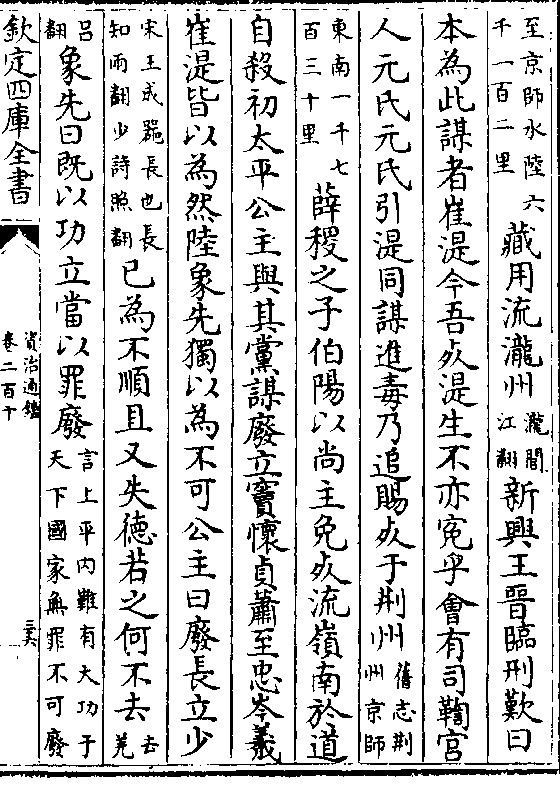 至京師水陸六千一百二里藏用流瀧州瀧閭江翻新興王晉臨刑歎曰
本為此謀者崔湜今吾死湜生不亦寃乎會有司鞫宫
人元氏元氏引湜同謀進毒乃追賜死于荆州舊志荆州京師
東南一千七百三十里薛稷之子伯陽以尚主免死流嶺南於道
自殺初太平公主與其黨謀廢立竇懷貞蕭至忠岑羲
崔湜皆以為然陸象先獨以為不可公主曰廢長立少
宋王成器長也長知兩翻少詩照翻已為不順且又失德若之何不去去羌
吕翻象先曰既以功立當以罪廢言上平内難有大功于天下國家無罪不可廢
欽定四庫全書
資治通鑑
卷二百十
三六